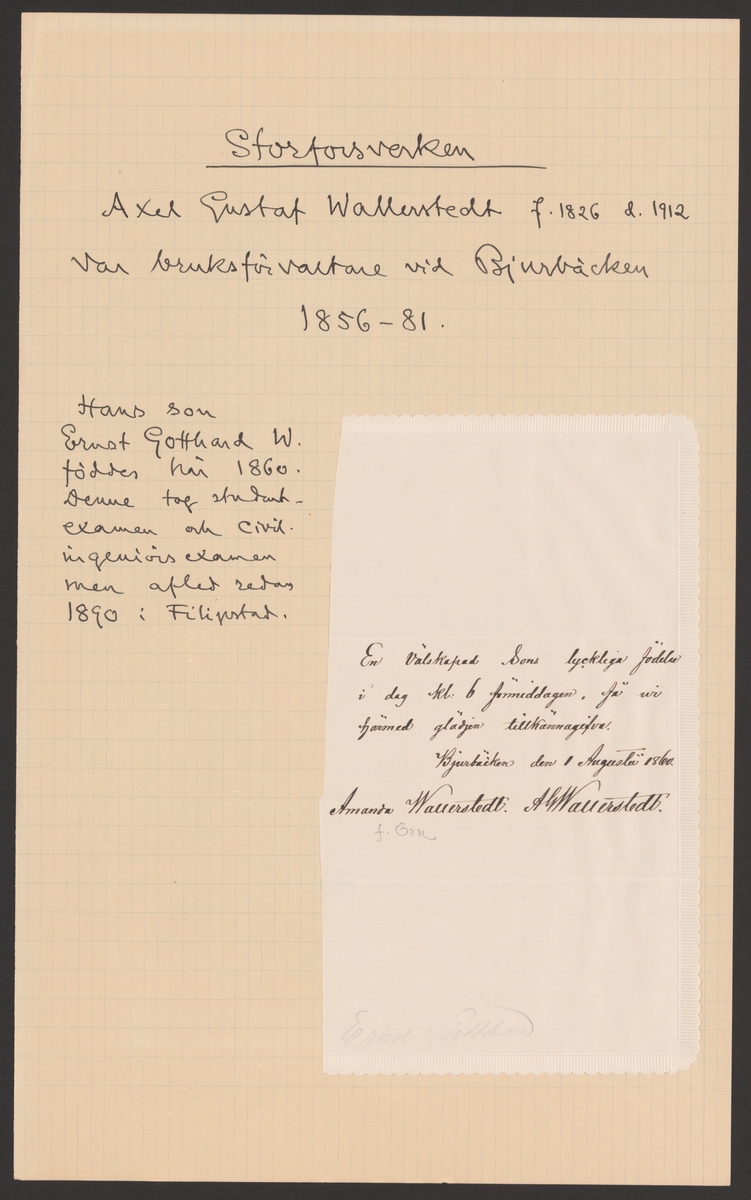 Storforsverken
Axel Gustaf Wallerstedt f. 1826 d. 1912
var bruksförvaltare vid Bjurbäcken
1856-81.
Hans son
Ernst Gotthard W.
föddes här 1860.
Denne tog student-
examen och civil-
ingeniörsexamen
men afled redan
1890 i Filipstad.
En Välskapad Sons lyckliga födelse
i dag kl: 6 förmiddagen, få vi
härmed glädjen tillkännagifva.
Bjurbäcken den 1 Augusti 1860.
Amanda Wallerstedt. AGWallerstedt.
f. Örn
Ernst Gotthard